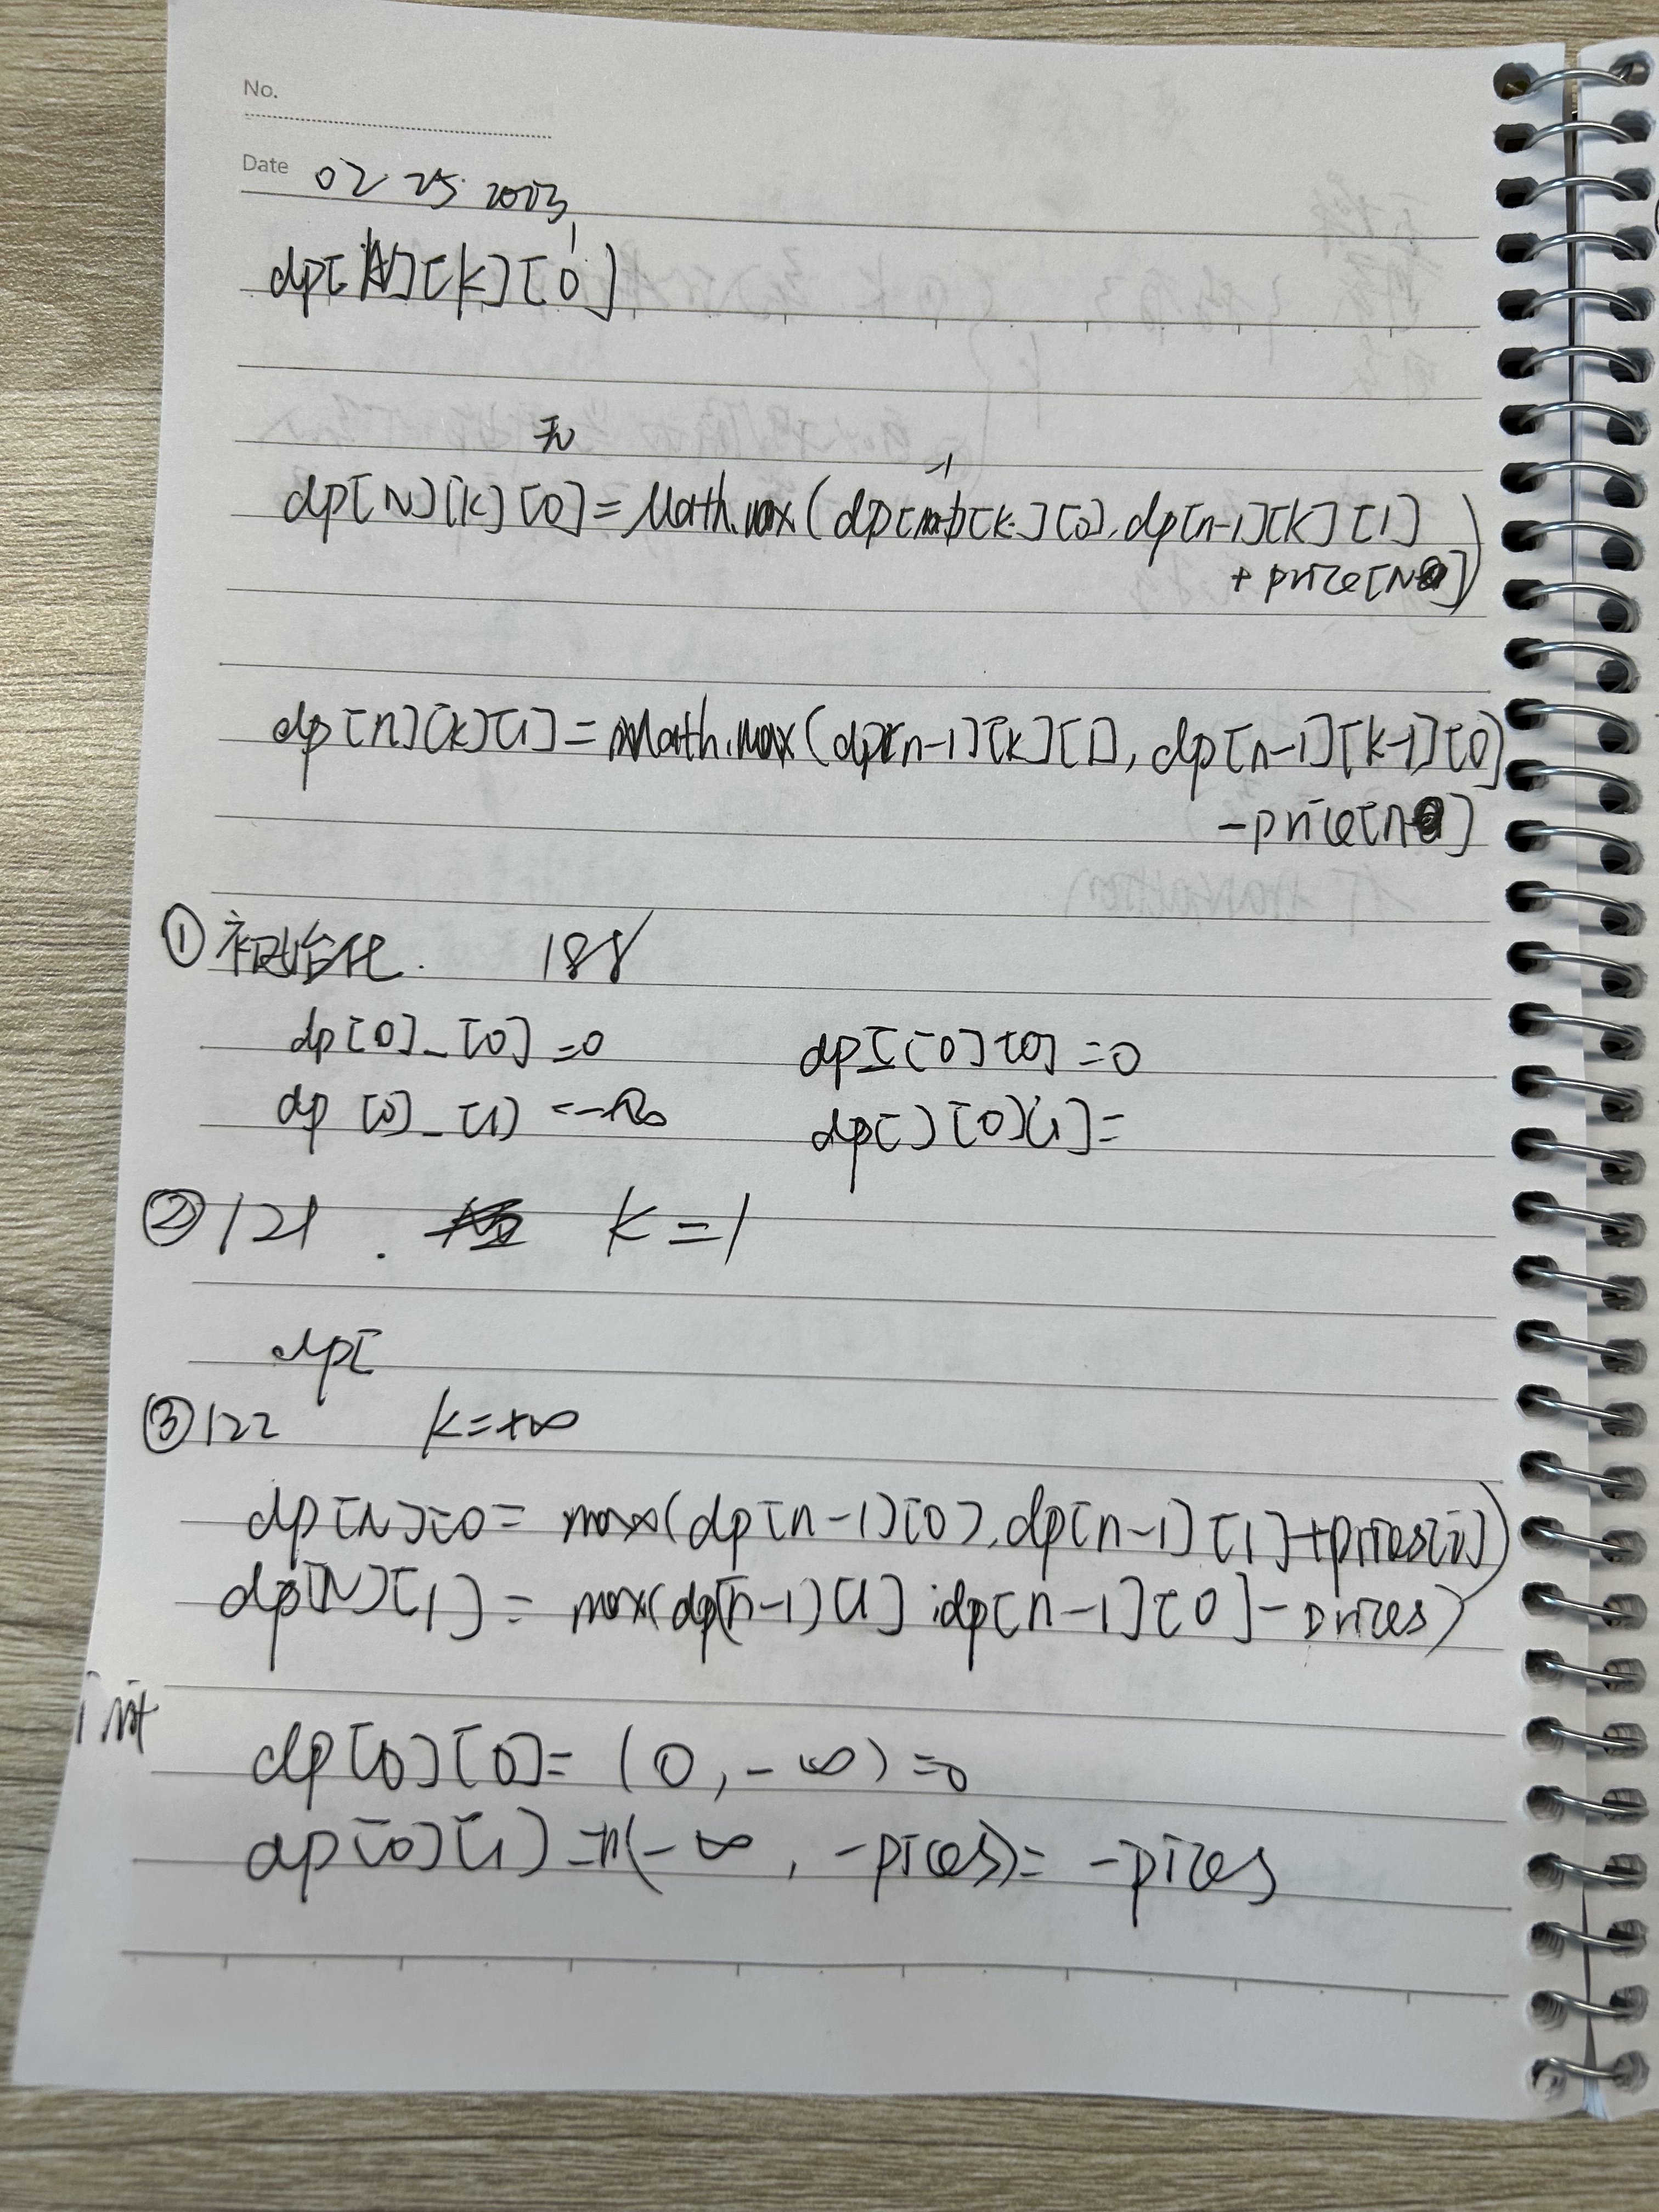 No.
Date 02 25 2023
dp[N][k][0]
1
无
-1
dp[N][k][0]=Math.max(dp[n-1][k][0],dp[n-1][k][1]
+price[N])
dp[n][k][1]=Math.max(dp[n-1][k][1],dp[n-1][k-1][0]
-price[n]
①初始化. 188
dp[0]_[0]=0 dp[][0][0]=0
dp[0]_[1]=-∞ dp[][0][1]=
②121. k=1
dp[
③122 k=+∞
dp[N][0= max(dp[n-1][0],dp[n-1][1]+prices[i])
dp[N][1]= max(dp[n-1][1],dp[n-1][0]-prices)
init
dp[0][0]=(0,-∞)=0
dp[0][1]=(-∞,-pices)=-pices